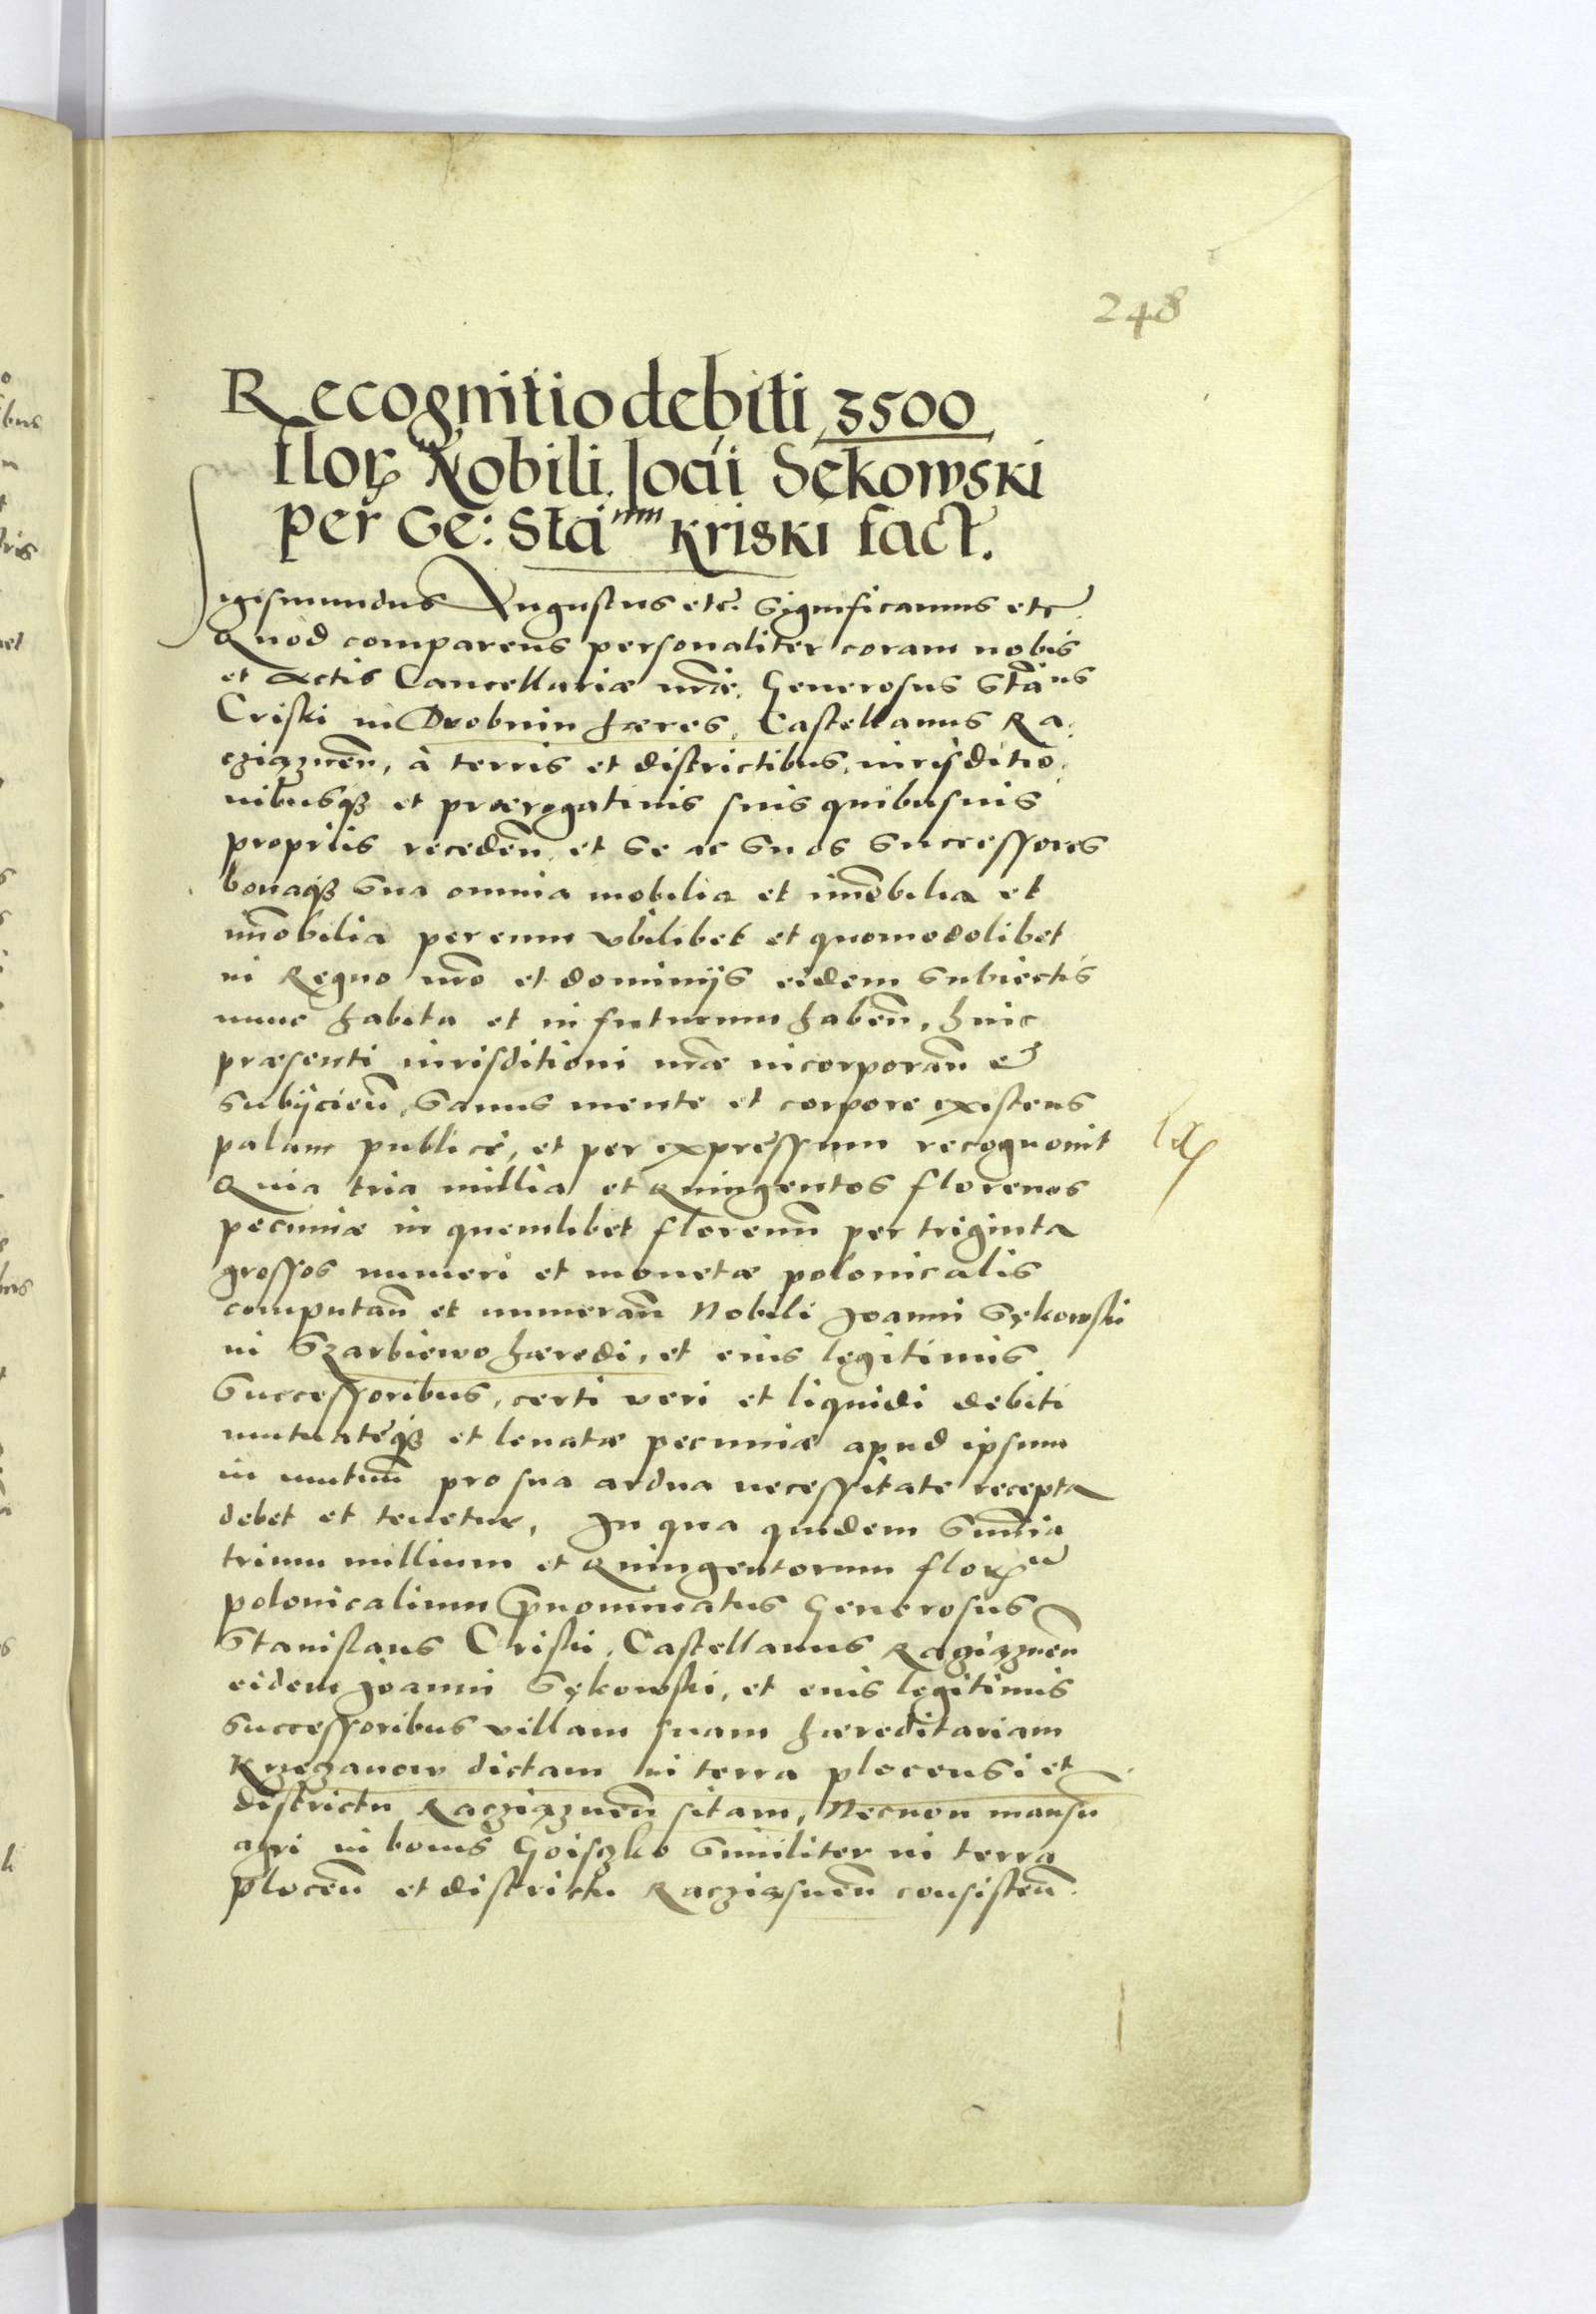 248
Recognitio debiti 3500
flor Nobili Joãi Sękowski
per Ge: Stã num Kriski fact.
Sigismundus Augustus etc. Significamus etc
Quod comparens personaliter coram nobis
et Actis Cancellariæ nr̃æ. Generosus Stã nus
Criski in Drobnin hæres, Castellanus Ra:
cziązneñ, à terris et districtibus, iurisditio,
nibusqȝ et prærogatiuis suis quibusuis
proprijs recedeñ et se ac suos successores
bonaqȝ sua omnia mobilia et im̃obilia et
im̃obilia per eum vbilibet et quomodolibet
in Regno nr̃o et dominijs eidem subiectis
nunc habita et in futurum habeñ, huic
præsenti iurisditioni nr̃æ incorporañ et
subijcieñ, sanus mente et corpore existens
palam publicè, et per expressum recognouit
Quia tria millia et Quingentos florenos
pecuniæ in quemlibet florenũ per triginta
grossos numeri et monetæ polonicalis
computañ et numerañ Nobili Joanni Sękowski
in Szarbiewo hæredi, et eius legitimis
successoribus, certi veri et liquidi debiti
mutuatęqȝ et leuatæ pecuniæ apud ipsum
in mutuũ pro sua ardua necessitate recepta
debet et tenetur, In qua quidem sum̃a
trium millium et Quingentorum flor
polonicalium p̃nominatus Generosus
Stanislaus Criski, Castellanus Raziązneñ
eidem Joanni Sękowski, et eius legitimis
successoribus villam suam hæreditariam
Krzeczanow dictam in terra plocensi et
districtu Racziązneñ sitam, Necnon mansũ
agri in bonis Goisczko similiter in terra
ploceñ et districtu Racziąsneñ consisteñ.